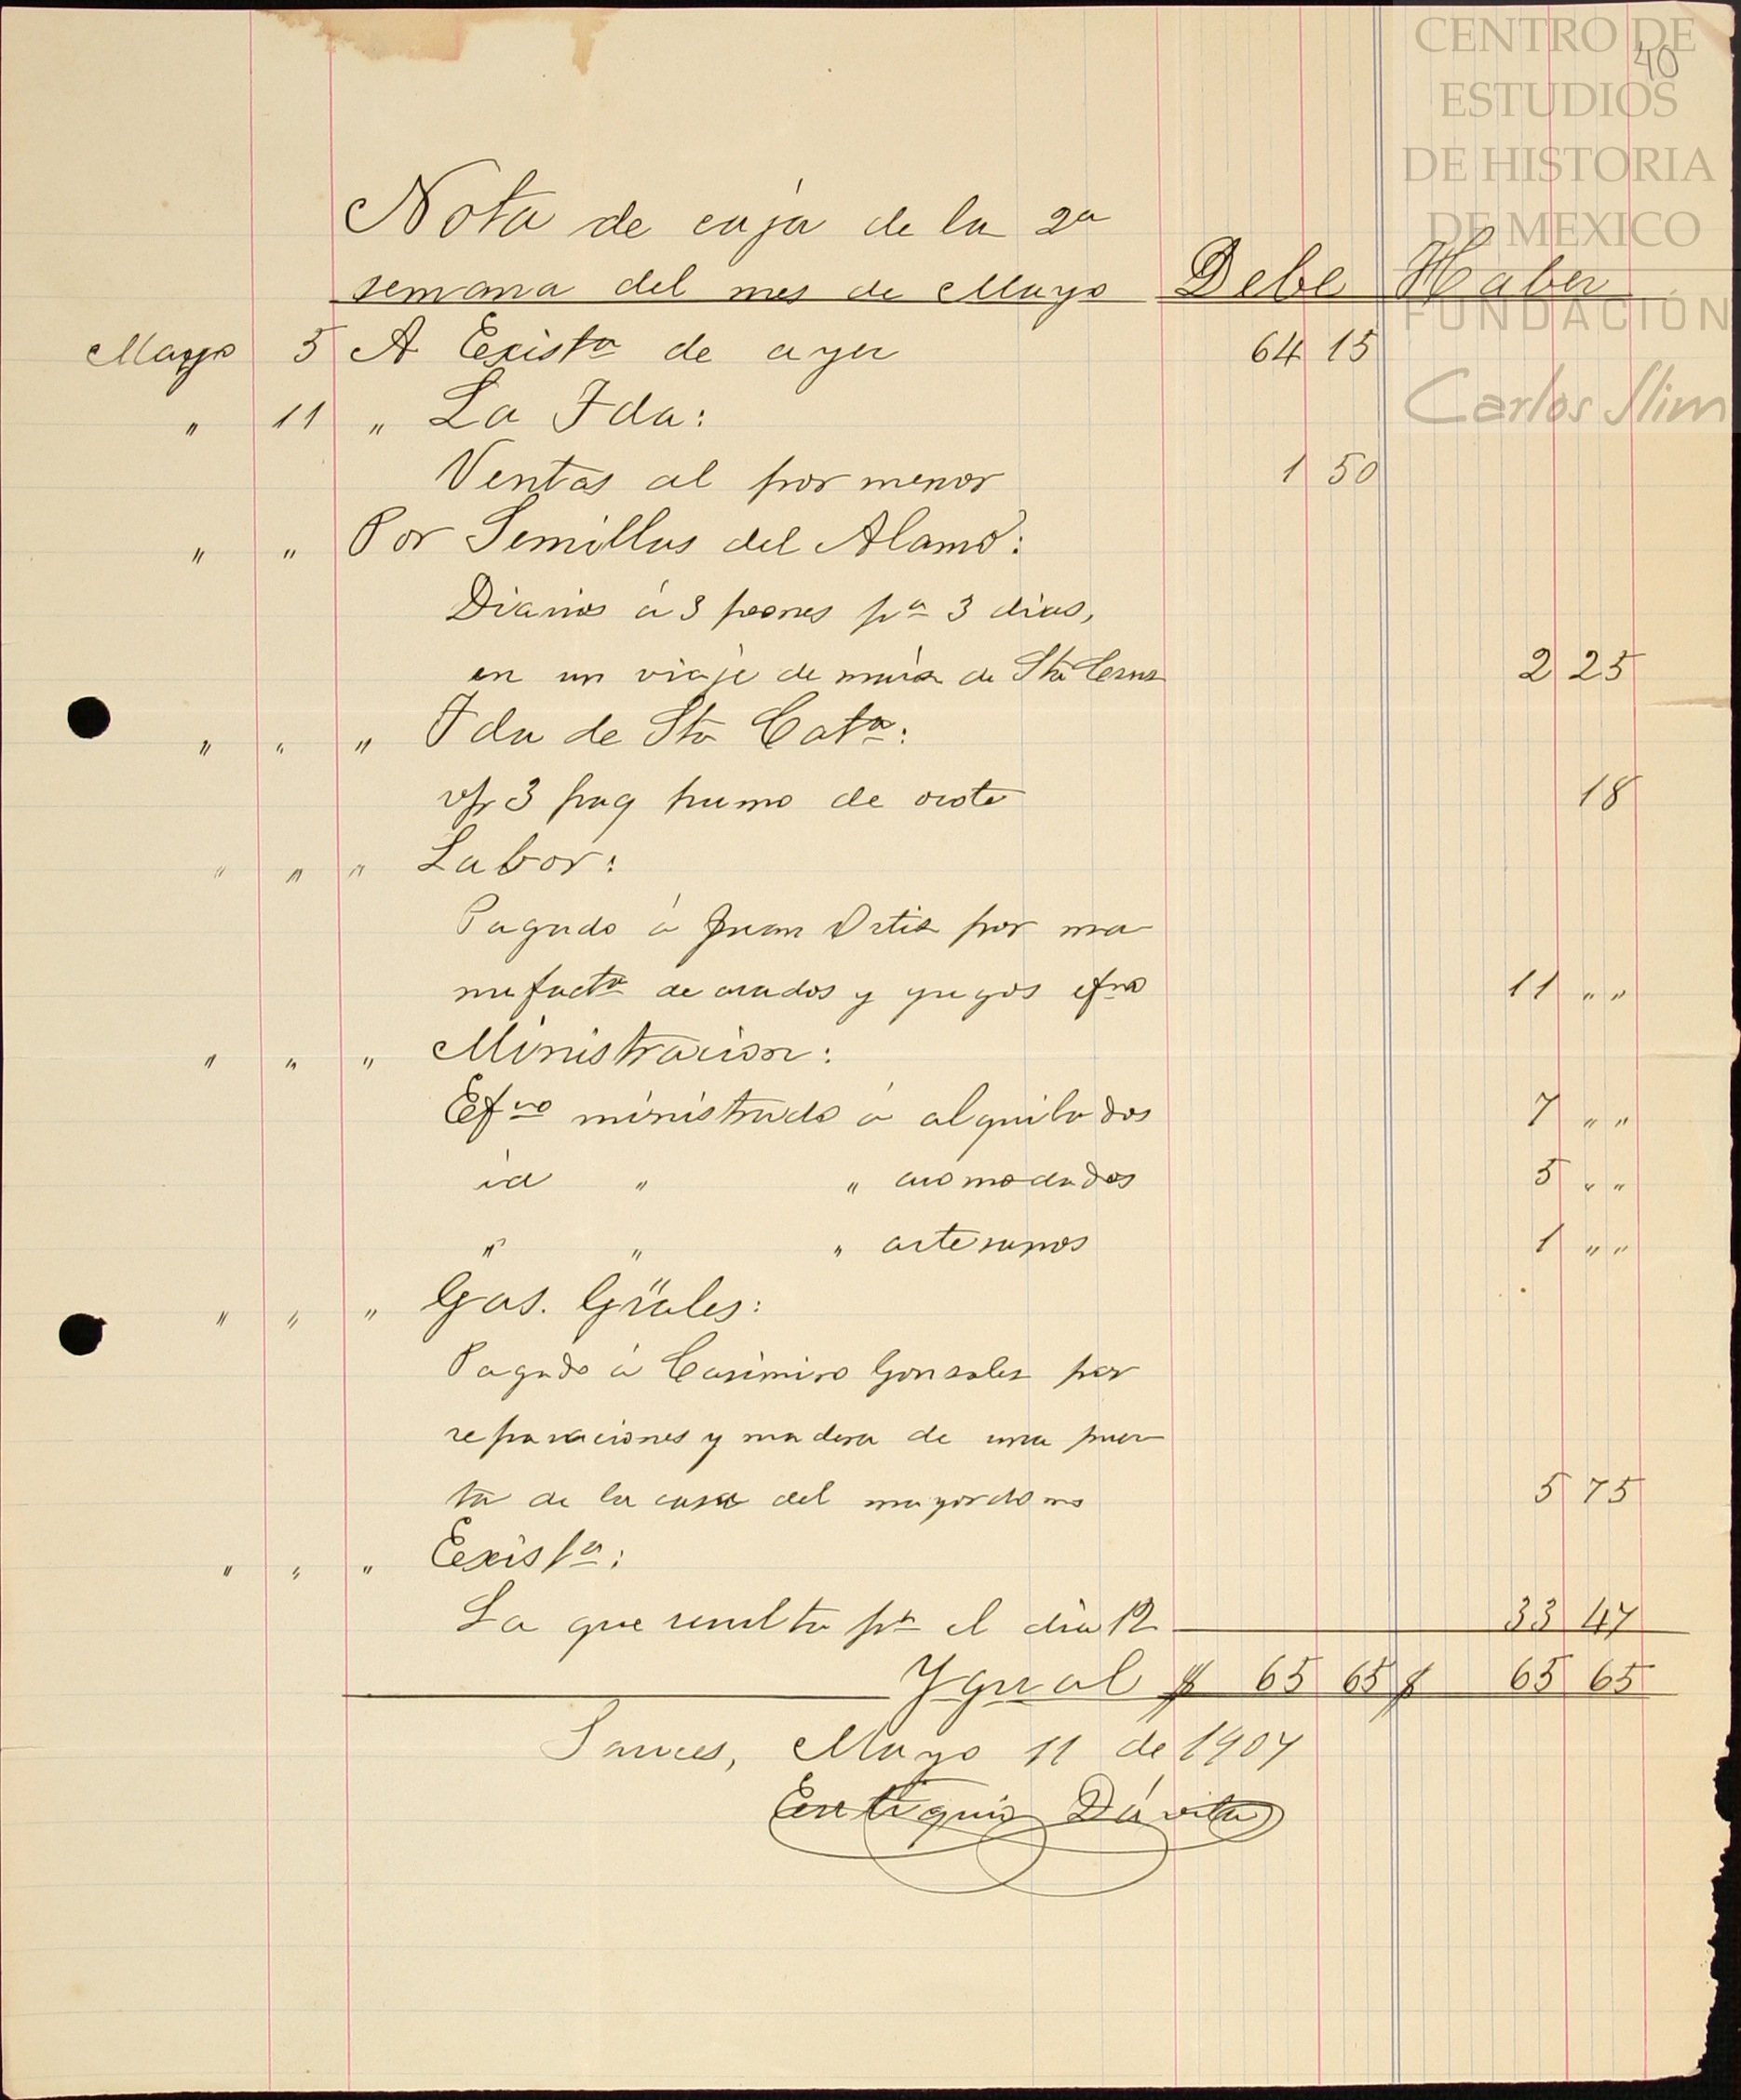 CENTRO DE
ESTUDIOS
DE HISTORIA
DE MEXICO
FUNDACIÓN
Carlos Slim
40
Nota de caja de la 2a
semana del mes de Mayo Debe Haber
Mayo 5 A Exista de ayer 64 15
" 11 " La Fda:
Ventas al por menor 1 50
" " Por Semillas del Alamo:
Diarios á 3 peones pa 3 dias,
en un viaje de maiz de Sta Cruz 2 25
" " " Fda de Sta Cata:
vr 3 paq humo de ocote 18
" " " Labor:
Pagado á Juan Ortiz por ma
nufacta de arados y yugos efvo 11 " "
" " " Ministracion:
Efvo ministrado á alquilados 7 " "
id " " acomodados 5 " "
" " " artesanos 1 " "
" " " Gas. Grales:
Pagado á Casimiro Gonzalez por
reparaciones y madera de una puer
ta de la casa del mayordomo 5 75
" " " Exista:
La que resulta pa el dia 12 33 47
Ygual $ 65 65 $ 65 65
Sauces, Mayo 11 de 1907
Eutiquio Dávila